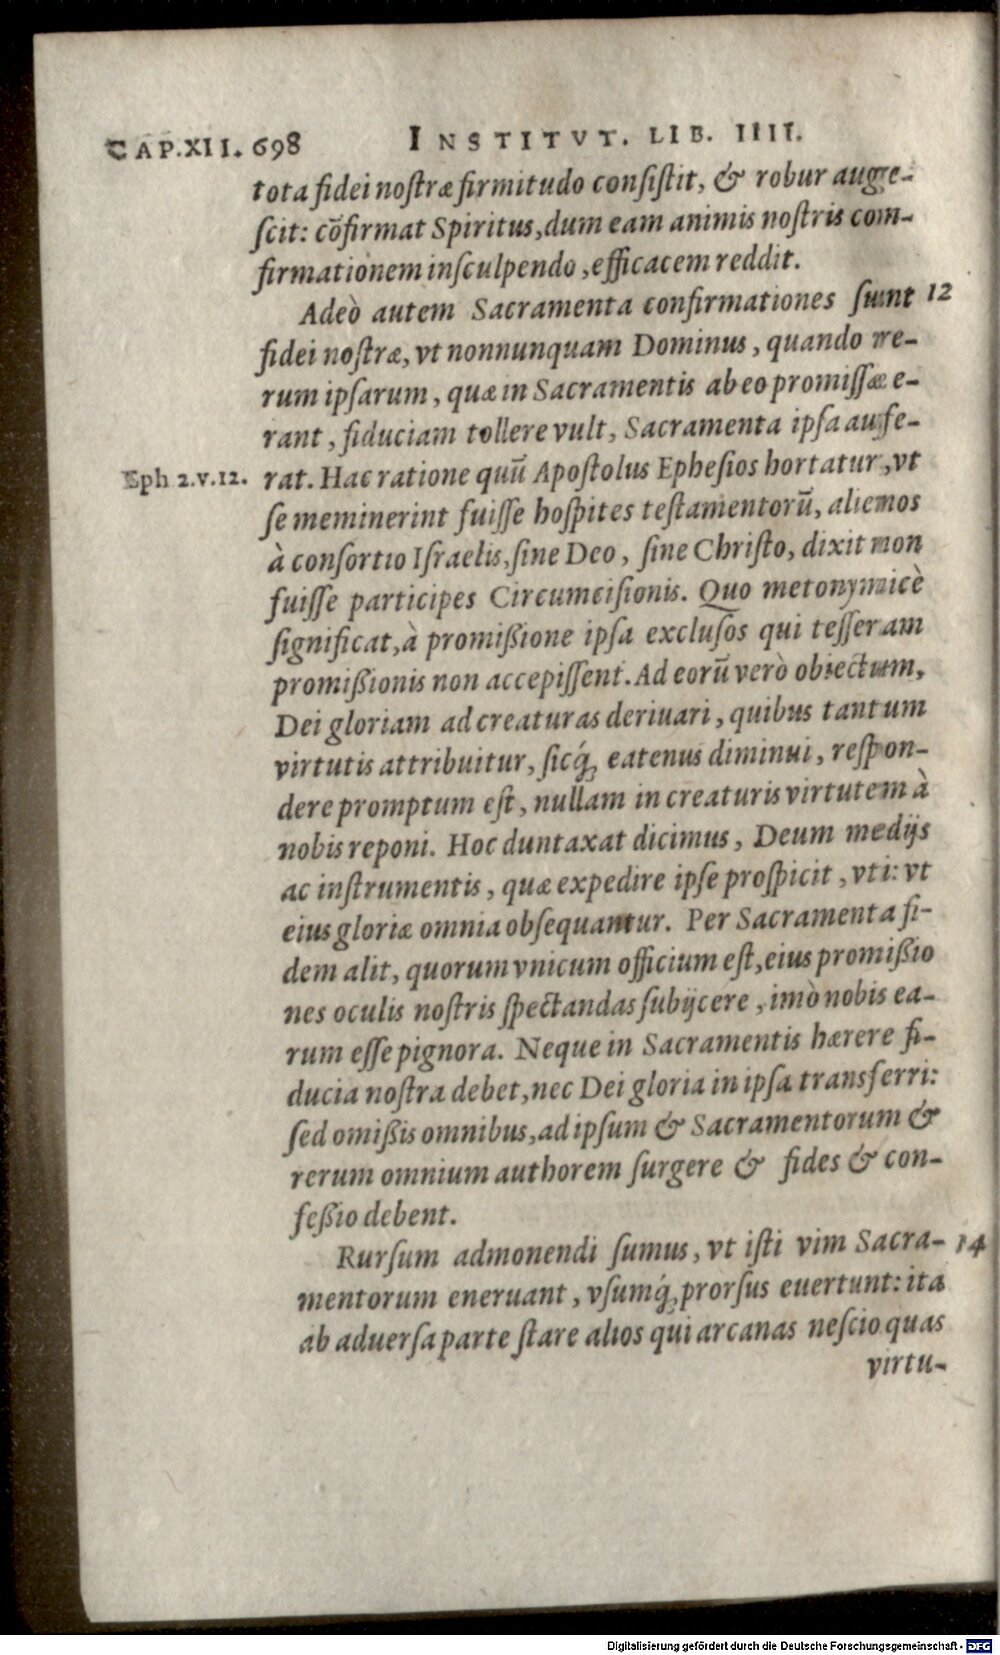 CAP.XII. 698 INSTITVT. LIB. IIII.
tota fidei nostræ firmitudo consistit, & robur auge-
scit: cõfirmat Spiritus, dum eam animis nostris com-
firmationem insculpendo, efficacem reddit.
Adeò autem Sacramenta confirmationes sunt 12
fidei nostræ, vt nonnunquam Dominus, quando re-
rum ipsarum, quæ in Sacramentis ab eo promissæ e-
rant, fiduciam tollere vult, Sacramenta ipsa aufe-
Eph 2.v.12. rat. Hac ratione quũ Apostolus Ephesios hortatur, vt
se meminerint fuisse hospites testamentorũ, alienos
à consortio Israelis, sine Deo, sine Christo, dixit non
fuisse participes Circumcisionis. Quo metonymicè
significat, à promißione ipsa exclusos qui tesseram
promißionis non accepissent. Ad eorũ verò obiectum,
Dei gloriam ad creaturas deriuari, quibus tantum
virtutis attribuitur, sicq́; eatenus diminui, respon-
dere promptum est, nullam in creaturis virtutem à
nobis reponi. Hoc duntaxat dicimus, Deum medijs
ac instrumentis, quæ expedire ipse prospicit, vti: vt
eius gloriæ omnia obsequantur. Per Sacramenta fi-
dem alit, quorum vnicum officium est, eius promißio
nes oculis nostris spectandas subijcere, imò nobis ea-
rum esse pignora. Neque in Sacramentis hærere fi-
ducia nostra debet, nec Dei gloria in ipsa transferri:
sed omißis omnibus, ad ipsum & Sacramentorum &
rerum omnium authorem surgere & fides & con-
feßio debent.
Rursum admonendi sumus, vt isti vim Sacra- 14
mentorum eneruant, vsumq́; prorsus euertunt: ita
ab aduersa parte stare alios qui arcanas nescio quas
virtu-
Digitalisierung gefördert durch die Deutsche Forschungsgemeinschaft - DFG